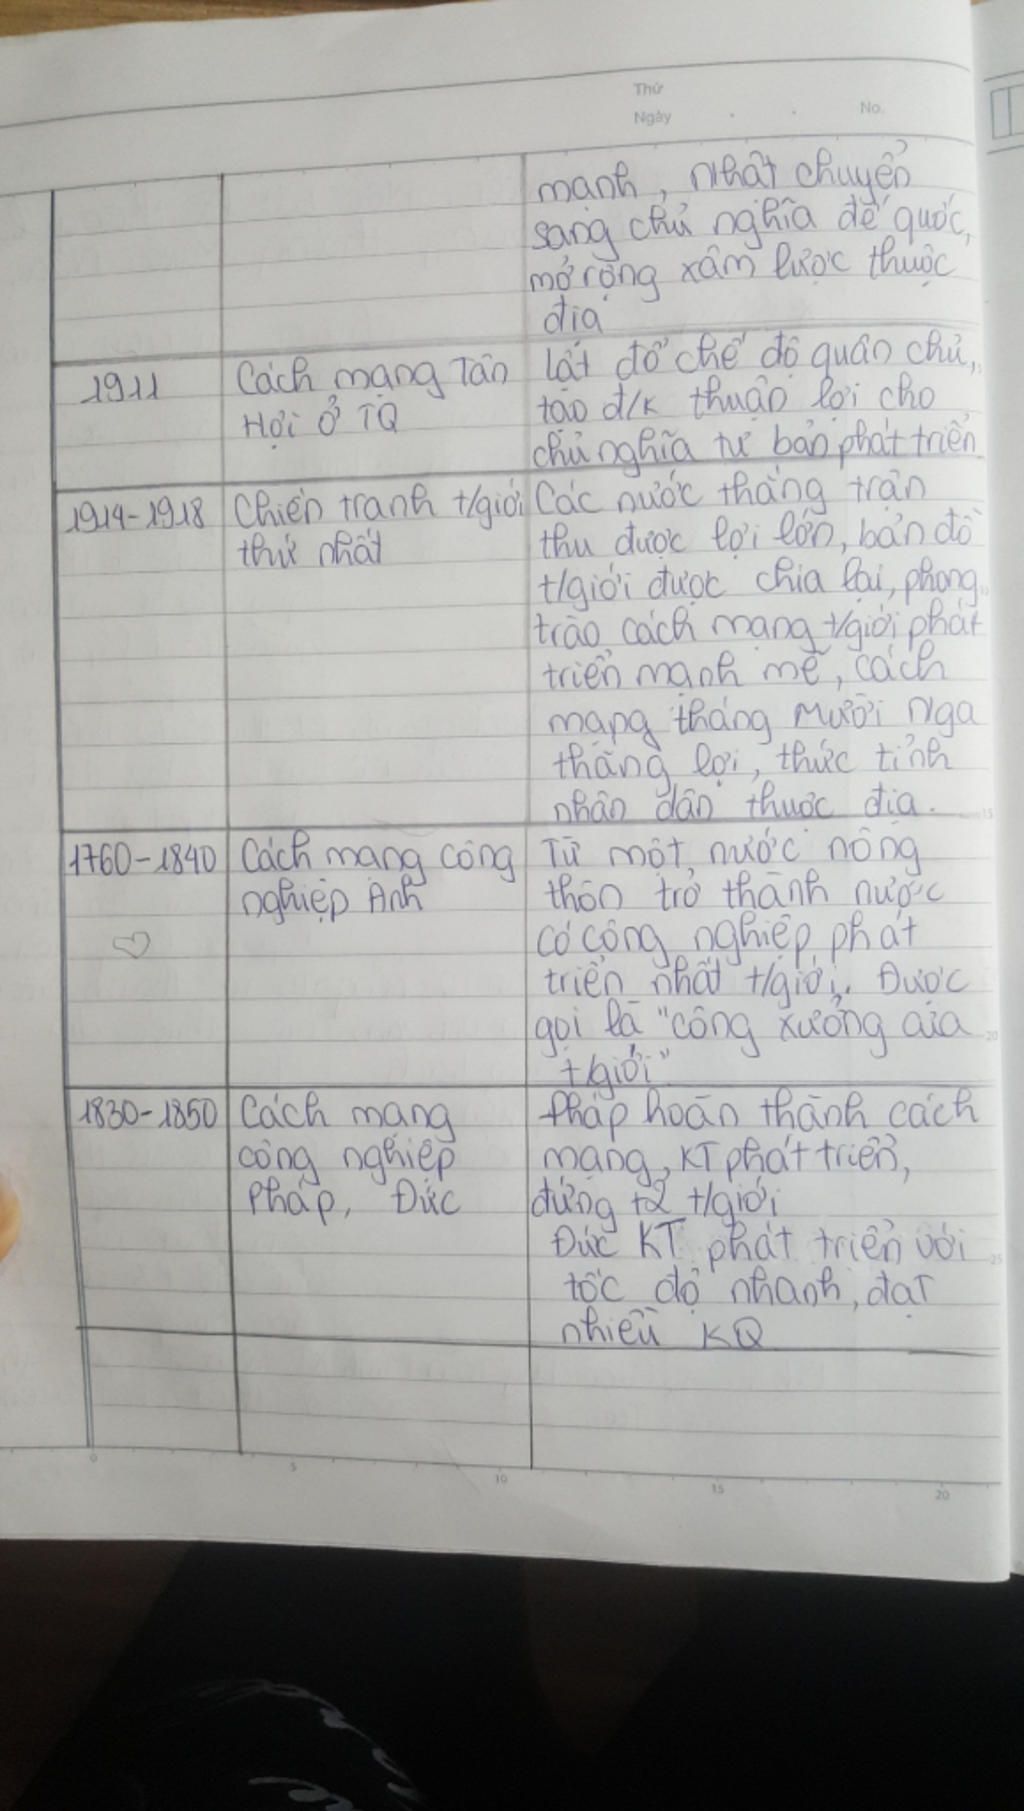 Thứ
Ngày
No.
mạnh, Nhật chuyển
sang chủ nghĩa đế quốc,
mở rộng xâm lược thuộc
địa
1911
Cách mạng Tân
Hợi ở TQ
Lật đổ chế độ quân chủ,
tạo đ/k thuận lợi cho
chủ nghĩa tư bản phát triển
1914-1918
Chiến tranh t/giới
thứ nhất
Các nước thắng trận
thu được lợi lớn, bản đồ
t/giới được chia lại, phong
trào cách mạng t/giới phát
triển mạnh mẽ, cách
mạng tháng Mười Nga
thắng lợi, thức tỉnh
nhân dân thuộc địa.
1760-1840
Cách mạng công
nghiệp Anh
Từ một nước nông
thôn trở thành nước
có công nghiệp phát
triển nhất t/giới. Được
gọi là "công xưởng của
t/giới"
1830-1850
Cách mạng
công nghiệp
Pháp, Đức
Pháp hoàn thành cách
mạng, KT phát triển,
đứng t2 t/giới
Đức KT phát triển với
tốc độ nhanh, đạt
nhiều KQ
0
5
10
15
20
15
20
25